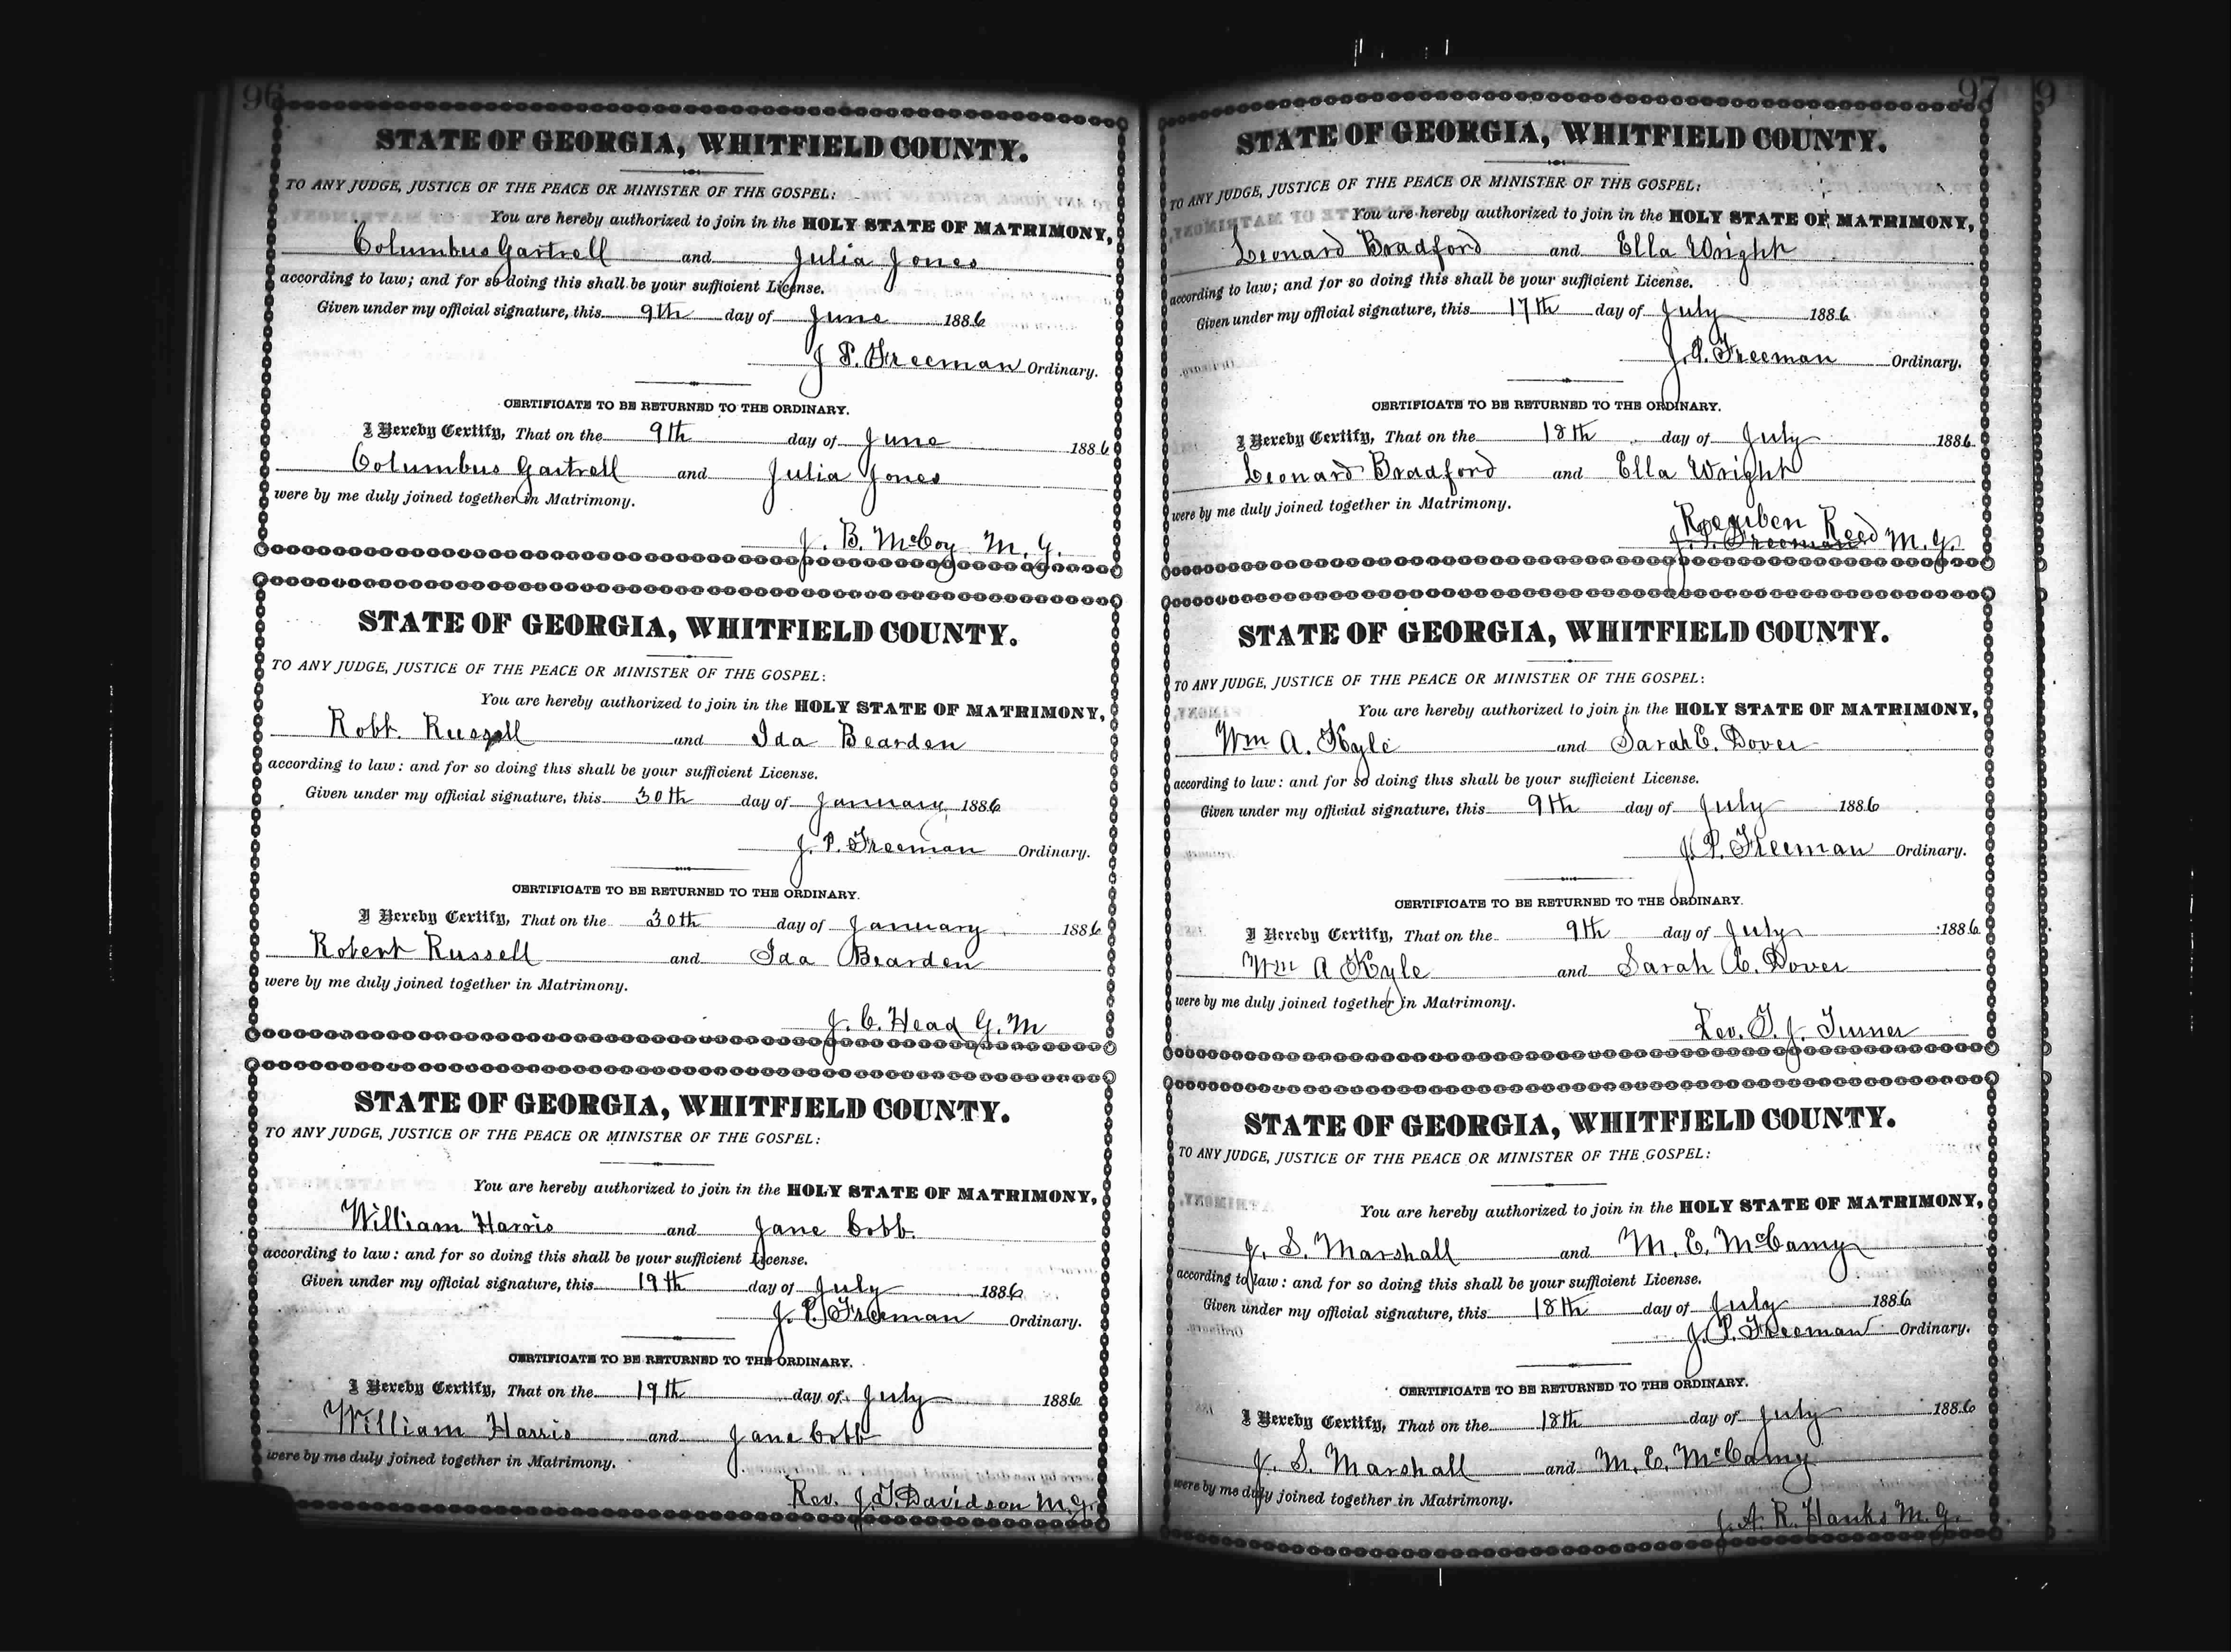 96
STATE OF GEORGIA, WHITFIELD COUNTY.
TO ANY JUDGE, JUSTICE OF THE PEACE OR MINISTER OF THE GOSPEL:
You are hereby authorized to join in the HOLY STATE OF MATRIMONY,
Columbus Gartrell and Julia Jones
according to law; and for so doing this shall be your sufficient License.
Given under my official signature, this 9th day of June 1886
J. P. Freeman Ordinary.
CERTIFICATE TO BE RETURNED TO THE ORDINARY.
I Hereby Certify, That on the 9th day of June 1886
Columbus Gartrell and Julia Jones
were by me duly joined together in Matrimony.
J. B. McCoy M. G.
STATE OF GEORGIA, WHITFIELD COUNTY.
TO ANY JUDGE, JUSTICE OF THE PEACE OR MINISTER OF THE GOSPEL:
You are hereby authorized to join in the HOLY STATE OF MATRIMONY,
Robt. Russell and Ida Bearden
according to law: and for so doing this shall be your sufficient License.
Given under my official signature, this 30th day of January 1886
J. P. Freeman Ordinary.
CERTIFICATE TO BE RETURNED TO THE ORDINARY.
I Hereby Certify, That on the 30th day of January 1886
Robert Russell and Ida Bearden
were by me duly joined together in Matrimony.
J. C. Head G. M
STATE OF GEORGIA, WHITFIELD COUNTY.
TO ANY JUDGE, JUSTICE OF THE PEACE OR MINISTER OF THE GOSPEL:
You are hereby authorized to join in the HOLY STATE OF MATRIMONY,
William Harris and Jane Cobb.
according to law: and for so doing this shall be your sufficient License.
Given under my official signature, this 19th day of July 1886
J. P. Freeman Ordinary.
CERTIFICATE TO BE RETURNED TO THE ORDINARY.
I Hereby Certify, That on the 19th day of July 1886
William Harris and Jane Cobb
were by me duly joined together in Matrimony.
Rev. J. T. Davidson M. G.
97
STATE OF GEORGIA, WHITFIELD COUNTY.
TO ANY JUDGE, JUSTICE OF THE PEACE OR MINISTER OF THE GOSPEL:
You are hereby authorized to join in the HOLY STATE OF MATRIMONY,
Leonard Bradford and Ella Wright
according to law; and for so doing this shall be your sufficient License.
Given under my official signature, this 17th day of July 1886
J. P. Freeman Ordinary.
CERTIFICATE TO BE RETURNED TO THE ORDINARY.
I Hereby Certify, That on the 18th day of July 1886
Leonard Bradford and Ella Wright
were by me duly joined together in Matrimony.
Reuben Reed M. G.
J. P. Freeman
STATE OF GEORGIA, WHITFIELD COUNTY.
TO ANY JUDGE, JUSTICE OF THE PEACE OR MINISTER OF THE GOSPEL:
You are hereby authorized to join in the HOLY STATE OF MATRIMONY,
Wm A. Kyle and Sarah E. Dover
according to law: and for so doing this shall be your sufficient License.
Given under my official signature, this 9th day of July 1886
J. P. Freeman Ordinary.
CERTIFICATE TO BE RETURNED TO THE ORDINARY.
I Hereby Certify, That on the 9th day of July 1886
Wm A Kyle and Sarah E. Dover
were by me duly joined together in Matrimony.
Rev. T. J. Turner
STATE OF GEORGIA, WHITFIELD COUNTY.
TO ANY JUDGE, JUSTICE OF THE PEACE OR MINISTER OF THE GOSPEL:
You are hereby authorized to join in the HOLY STATE OF MATRIMONY,
J. S. Marshall and M. E. McCamy
according to law: and for so doing this shall be your sufficient License.
Given under my official signature, this 18th day of July 1886
J. P. Freeman Ordinary.
CERTIFICATE TO BE RETURNED TO THE ORDINARY.
I Hereby Certify, That on the 18th day of July 1886
J. S. Marshall and M. E. McCamy
were by me duly joined together in Matrimony.
J. A. R. Hanks M. G.
9